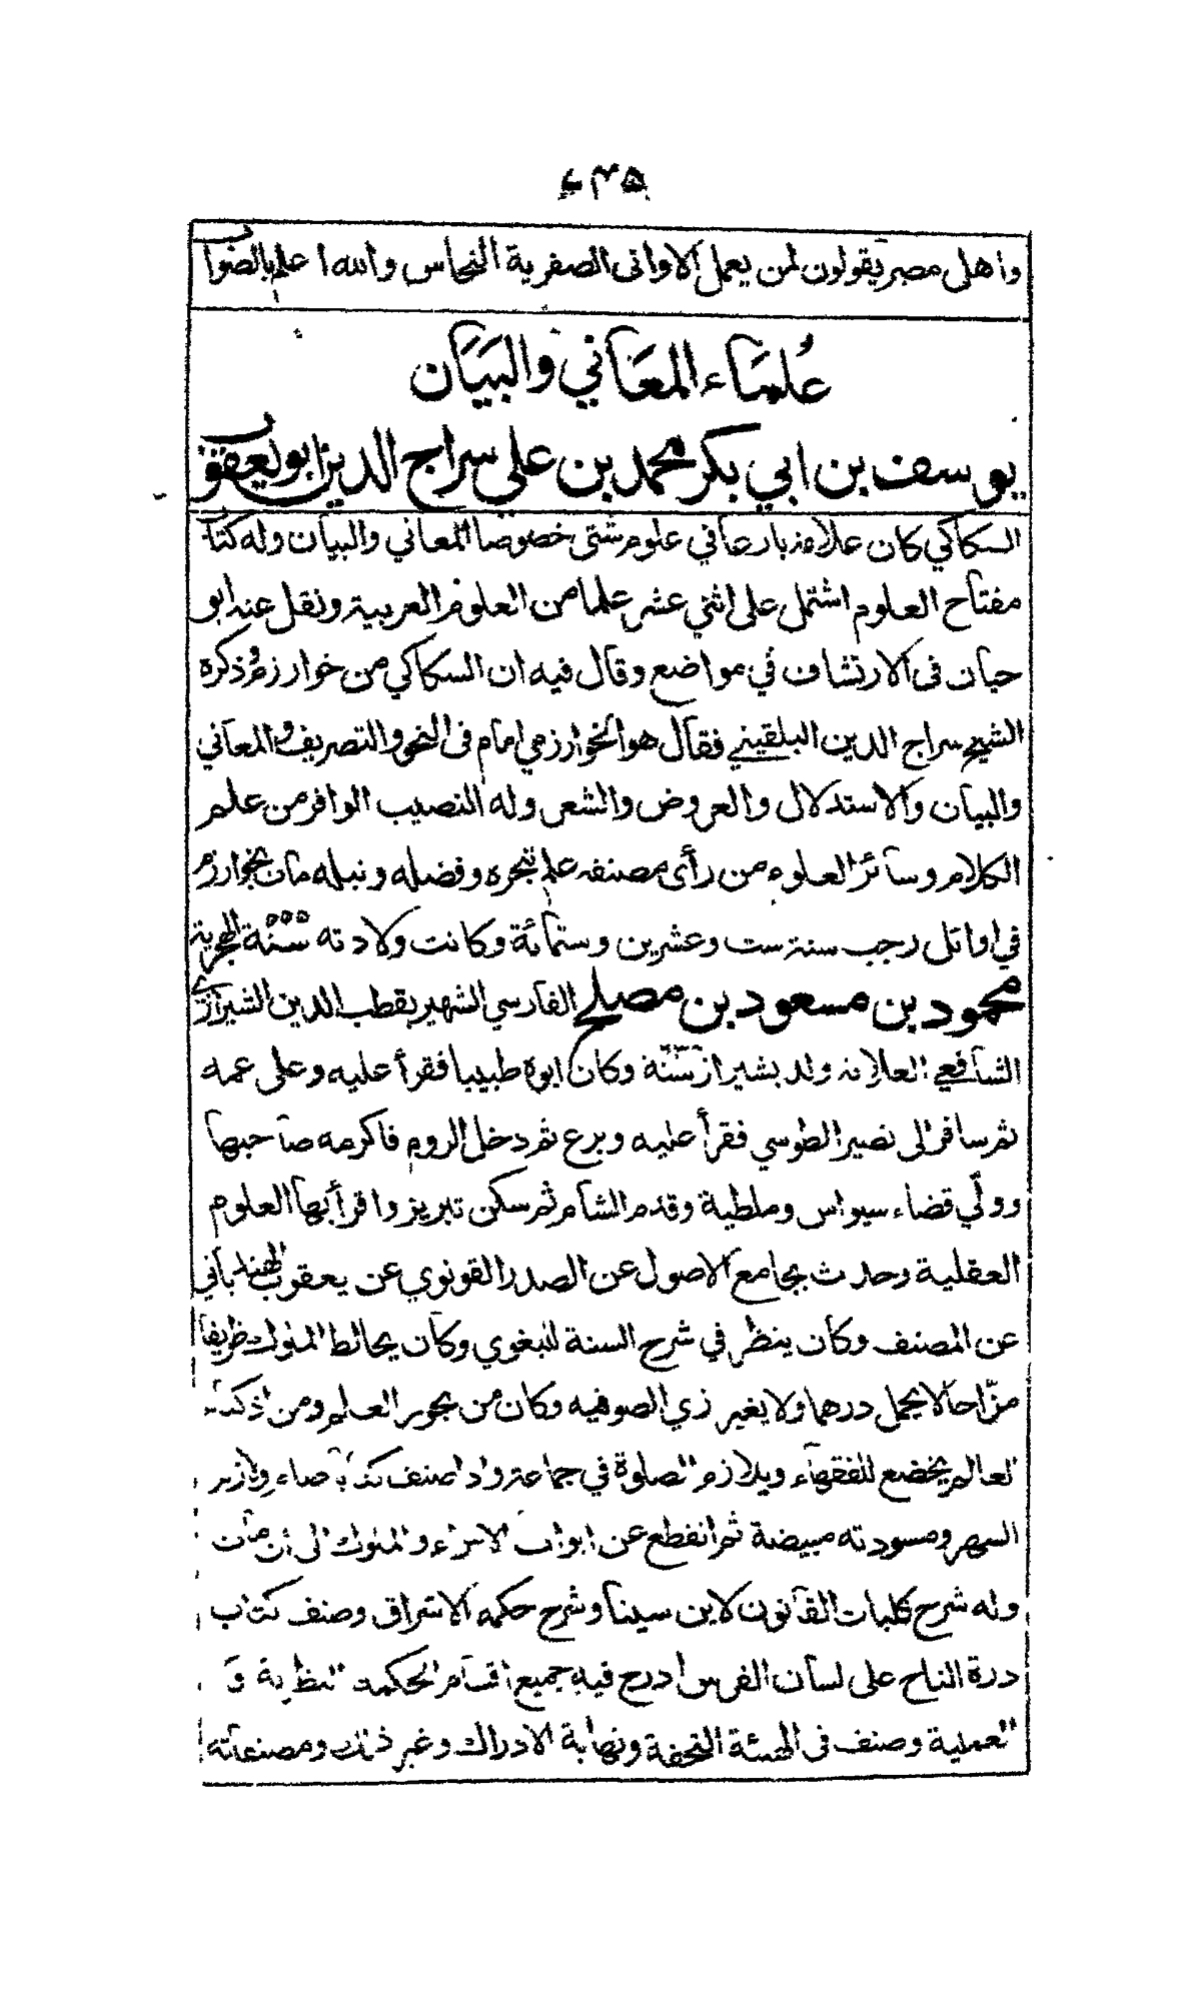 واهل مصر يقولون لمن يعمل الاواني الصفرية النحاس والله اعلم بالصواب
عُلمَاء المعَاني والبيَان
يوسف بن ابي بكر محمد بن علي سراج الدين ابو يعقوب
السكاكي كان علامة بارعا في علوم شتى خصوصا المعاني والبيان وله كتاب
مفتاح العلوم اشتمل على اثني عشر علما من العلوم العربية ونقل عنه ابو
حيان في الارتشاف في مواضع وقال فيه ان السكاكي من خوارزم وذكره
الشيخ سراج الدين البلقيني فقال هو الخوارزمي امام في النحو والتصريف والمعاني
والبيان والاستدلال والعروض والشعر وله النصيب الوافر من علم
الكلام وسائر العلوم من رأى مصنفه علم تبحره وفضله ونبله مات بخوارزم
في اوائل رجب سنة ست وعشرين وستمائة وكانت ولادته سنة ٥٥٥ الهجرية
محمود بن مسعود بن مصلح الفارسي الشهير بقطب الدين الشيرازي
الشافعي العلامة ولد بشيراز سنة وكان ابوه طبيبا فقرأ عليه وعلى عمه
ثم سافر الى نصير الطوسي فقرأ عليه وبرع ثم دخل الروم فاكرمه صاحبها
وولّي قضاء سيواس وملطية وقدم الشام ثم سكن تبريز واقرأ بها العلوم
العقلية وحدث بجامع الاصول عن الصدر القونوي عن يعقوب الهذباني
عن المصنف وكان ينظر في شرح السنة للبغوي وكان يخالط الملوك ظريفا
مزّاحا لا يحمل درهما ولا يغير زي الصوفيه وكان من بحور العلم ومن اذكياء
العالم يخضع للفقهاء ويلازم الصلوة في جماعة واذا صنف كتابا صام ولازم
السهر ومسودته مبيضة ثم انقطع عن ابواب الامراء والملوك الى ان مات
وله شرح كليات القانون لابن سينا وشرح حكمة الاشراق وصنف كتاب
درة التاج على لسان الفرس ادرج فيه جميع اقسام الحكمة النظرية و
العملية وصنف في الهيئة التحفة ونهاية الادراك وغير ذلك ومصنفاته